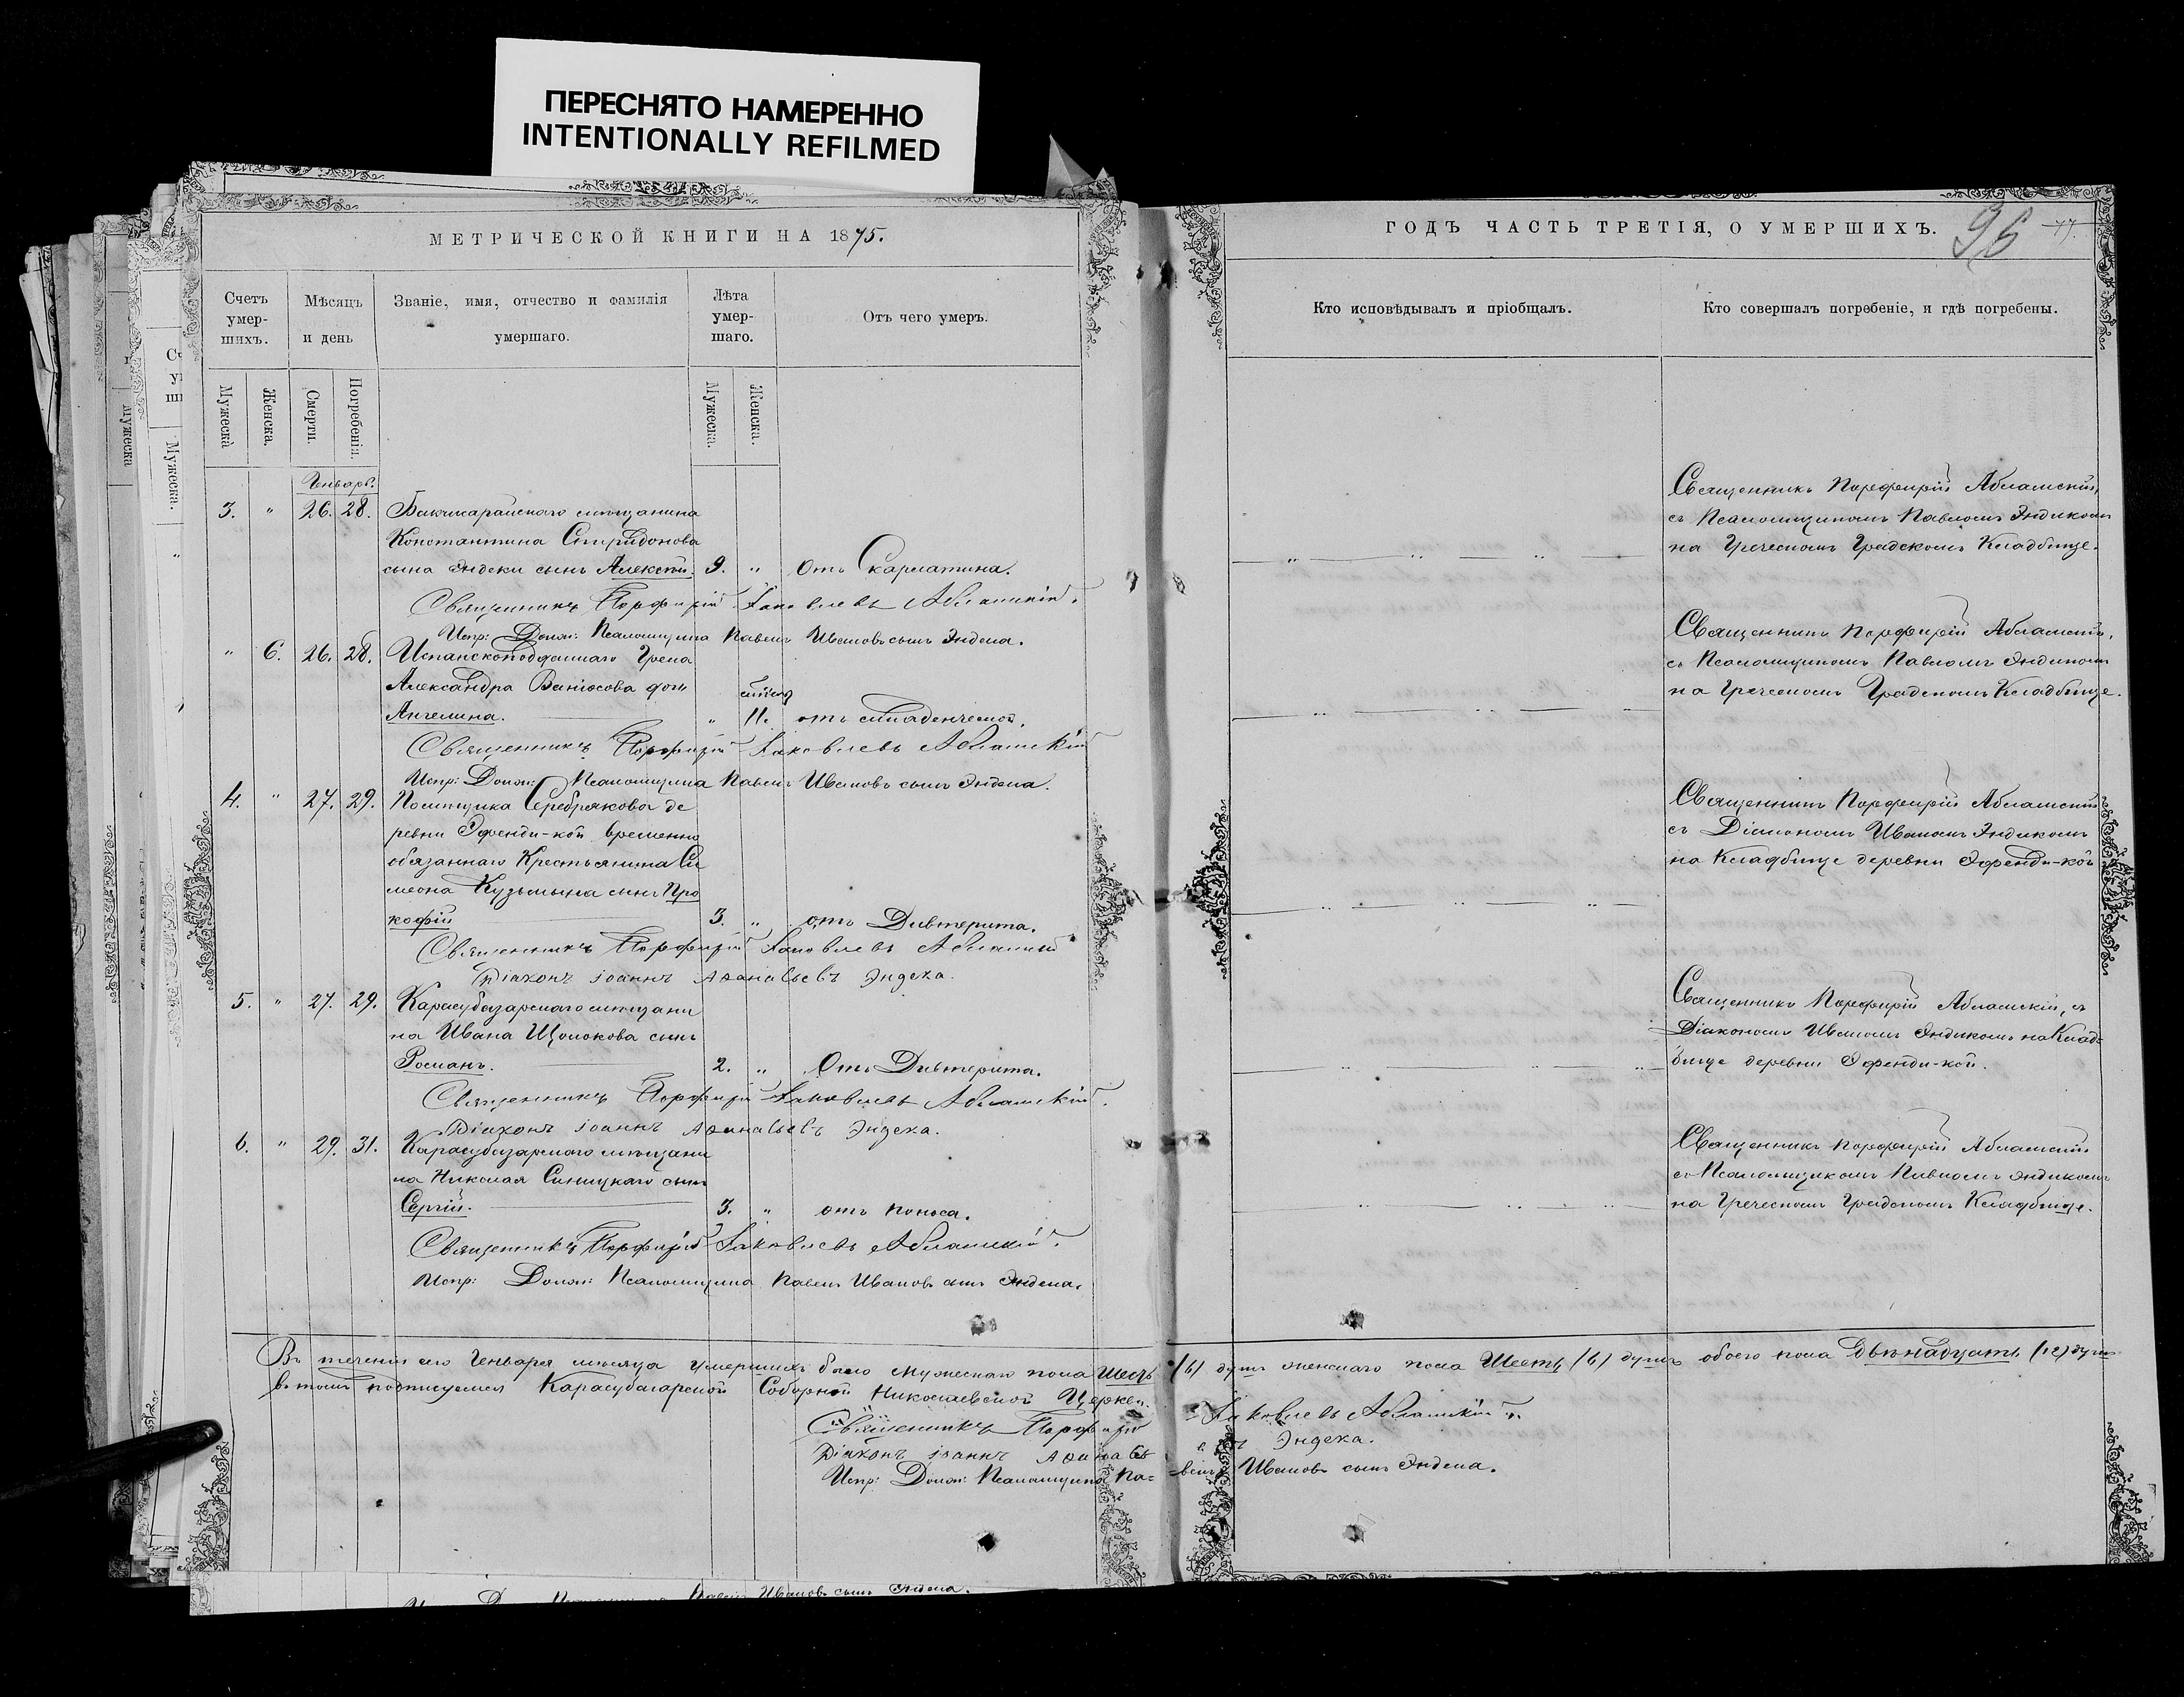 ПЕРЕСНЯТО НАМЕРЕННО
INTENTIONALLY REFILMED
МЕТРИЧЕСКОЙ КНИГИ НА 1875.
Счетъ умер-шихъ.
Мѣсяцъ и день
Званіе, имя, отчество и фамилія умершаго.
Лѣта умер-шаго.
Отъ чего умеръ.
Мужеска
Женска.
Смерти.
Погребенія.
Мужеска.
Женска.
Генварь.
3. " 26. 28. Бакчисарайскаго мѣщанина
Константина Спиридонова
сына Эндеки сынъ Алексѣй. 9. " отъ Скарлатина.
Священникъ Порфирій Іаковлевъ Абламскій.
Испр: Долж: Псаломщика Павелъ Ивановъ сынъ Эндека.
" 6. 26. 28. Испанскоподданнаго Грека
Александра дочь
Ангелина. " 11. отъ младенческой.
Священникъ Порфирій Іаковлевъ Абламскій
Испр: Долж: Псаломщика Павелъ Ивановъ сынъ Эндека.
4. " 27. 29. Помѣщика Серебрякова де
ревни Эфенди-кой временно
обязаннаго Крестьянина Си
меона Кузьмина сынъ Про
кофій 3. " отъ Дивтерита.
Священникъ Порфирій Іаковлевъ Абламскій
Діаконъ Іоаннъ Аѳанасьевъ Эндека.
5. " 27. 29. Карасубазарскаго мѣщани
на Ивана Щолокова сынъ
Романъ. 2. " Отъ Дивтерита.
Священникъ Порфирій Іаковлевъ Абламскій.
Діаконъ Іоаннъ Аѳанасьевъ Эндека.
6. " 29. 31. Карасубазарскаго мѣщани
на Николая Синицкаго сынъ
Сергій. 3. " отъ поноса.
Священникъ Порфирій Іаковлевъ Абламскій.
Испр: Долж: Псаломщика Павелъ Ивановъ сынъ Эндека.
ГОДЪ ЧАСТЬ ТРЕТІЯ, О УМЕРШИХЪ.
96
77.
Кто исповѣдывалъ и пріобщалъ.
Кто совершалъ погребеніе, и гдѣ погребены.
Священникъ Порфирій Абламскій,
съ Псаломщикомъ Павломъ Эндекомъ
на Греческомъ Градскомъ Кладбище.
Священникъ Порфирій Абламскій,
съ Псаломщикомъ Павломъ Эндекомъ
на Греческомъ Градскомъ Кладбище.
Священникъ Порфирій Абламскій
съ Діакономъ Иваномъ Эндекомъ
на Кладбище деревни Эфенди-кой
Священникъ Порфирій Абламскій, съ
Діакономъ Иваномъ Эндекомъ на Клад-
бище деревни Эфенди-кой.
Священникъ Порфирій Абламскій
со Псаломщикомъ Павломъ Эндекомъ
на Греческомъ Градскомъ Кладбище.
Въ теченіи сего Генваря мѣсяца умершихъ было мужескаго пола Шесть (6) душъ женскаго пола Шесть (6) душъ обоего пола Двѣнадцать (12) душъ
въ томъ подписуемся Карасубазарской Соборной Николаевской Церкви.
Священникъ Порфирій Іаковлевъ Абламскій.
Діаконъ Іоаннъ Аѳанасьевъ Эндека.
Испр: Долж: Псаломщика Па-велъ Ивановъ сынъ Эндека.
Ивановъ сынъ Эндека.